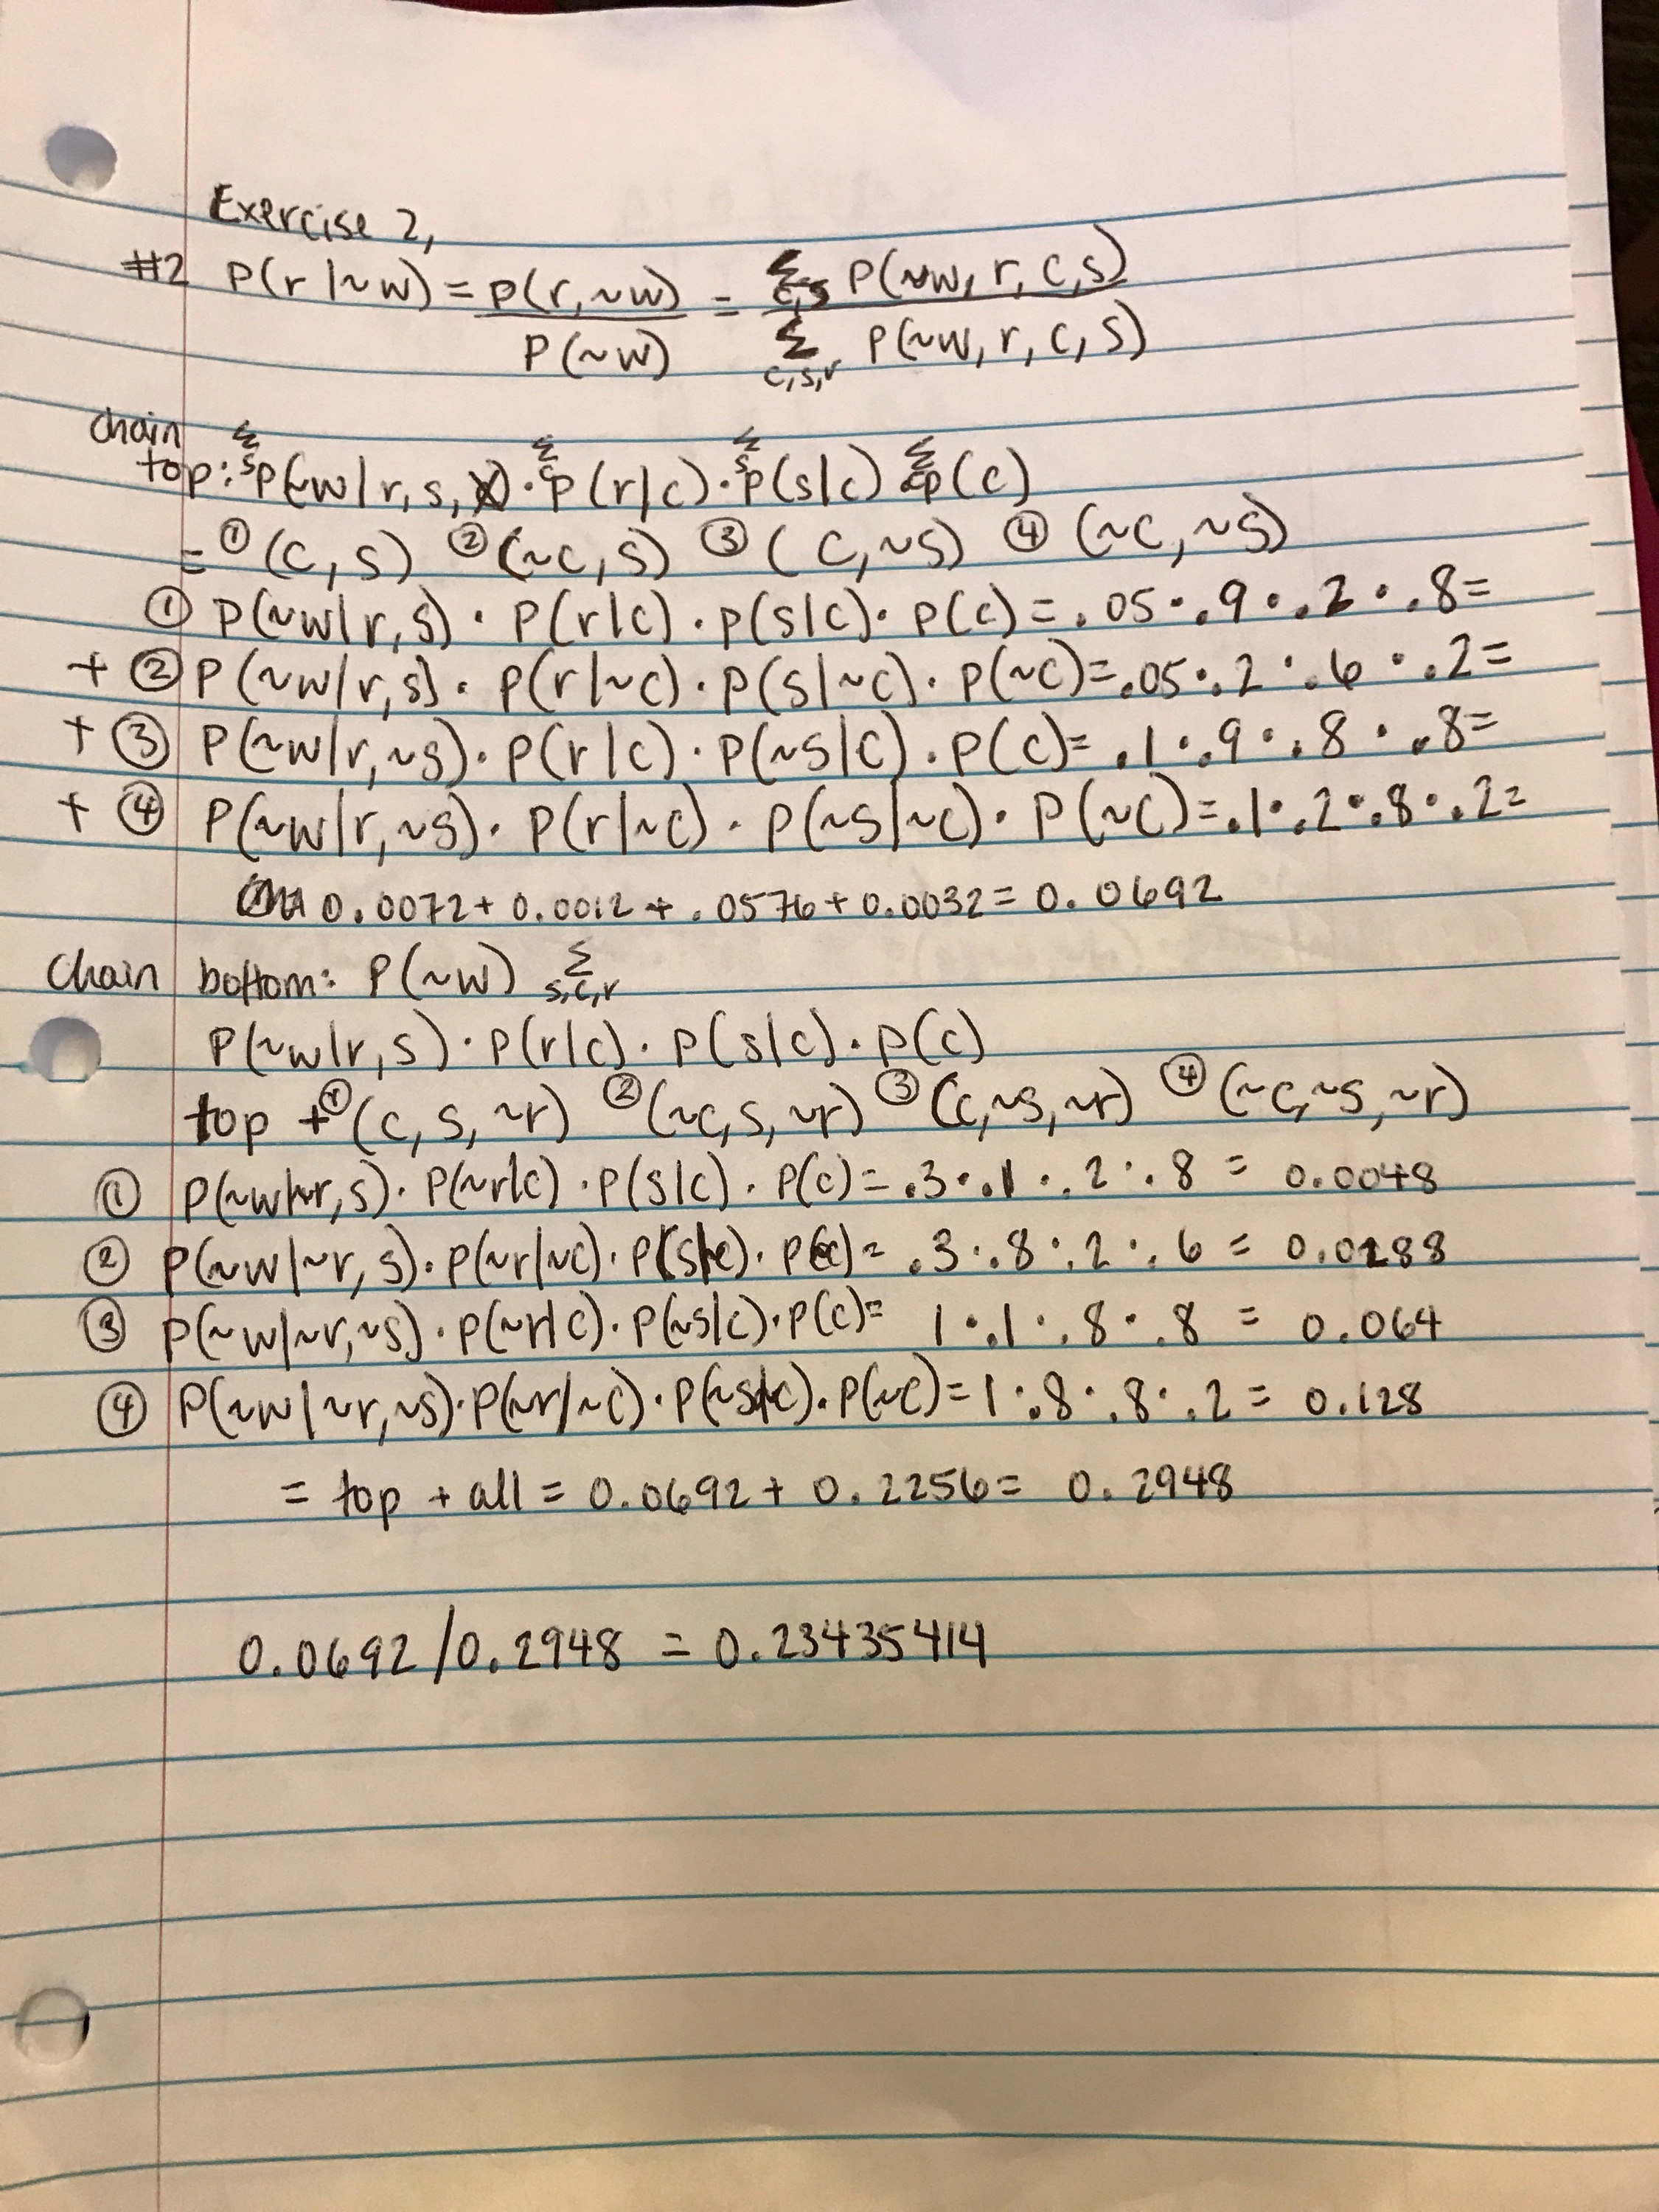 Exercise 2,
#2 P(r|~w) = P(r,~w) / P(~w) = Σ c,s P(~w, r, c, s) / Σ c,s,r P(~w, r, c, s)
chain
top: Σ s P(~w|r, s, ) · Σ c P(r|c) · Σ s P(s|c) Σ c P(c)
= ① (c, s) ② (~c, s) ③ (c, ~s) ④ (~c, ~s)
① P(~w|r, s) · P(r|c) · P(s|c) · P(c) = .05 · .9 · .2 · .8 =
+ ② P(~w|r, s) · P(r|~c) · P(s|~c) · P(~c) = .05 · .2 · .6 · .2 =
+ ③ P(~w|r, ~s) · P(r|c) · P(~s|c) · P(c) = .1 · .9 · .8 · .8 =
+ ④ P(~w|r, ~s) · P(r|~c) · P(~s|~c) · P(~c) = .1 · .2 · .8 · .2 =
0.0072 + 0.0012 + .0576 + 0.0032 = 0.0692
Chain bottom: P(~w) Σ s,c,r
P(~w|r, s) · P(r|c) · P(s|c) · P(c)
top + ① (c, s, ~r) ② (~c, s, ~r) ③ (c, ~s, ~r) ④ (~c, ~s, ~r)
① P(~w|~r, s) · P(~r|c) · P(s|c) · P(c) = .3 · .1 · .2 · .8 = 0.0048
② P(~w|~r, s) · P(~r|~c) · P(s|~c) · P(~c) = .3 · .8 · .2 · .6 = 0.0288
③ P(~w|~r, ~s) · P(~r|c) · P(~s|c) · P(c) = 1 · .1 · .8 · .8 = 0.064
④ P(~w|~r, ~s) · P(~r|~c) · P(~s|~c) · P(~c) = 1 · .8 · .8 · .2 = 0.128
= top + all = 0.0692 + 0.2256 = 0.2948
0.0692/0.2948 = 0.23435414